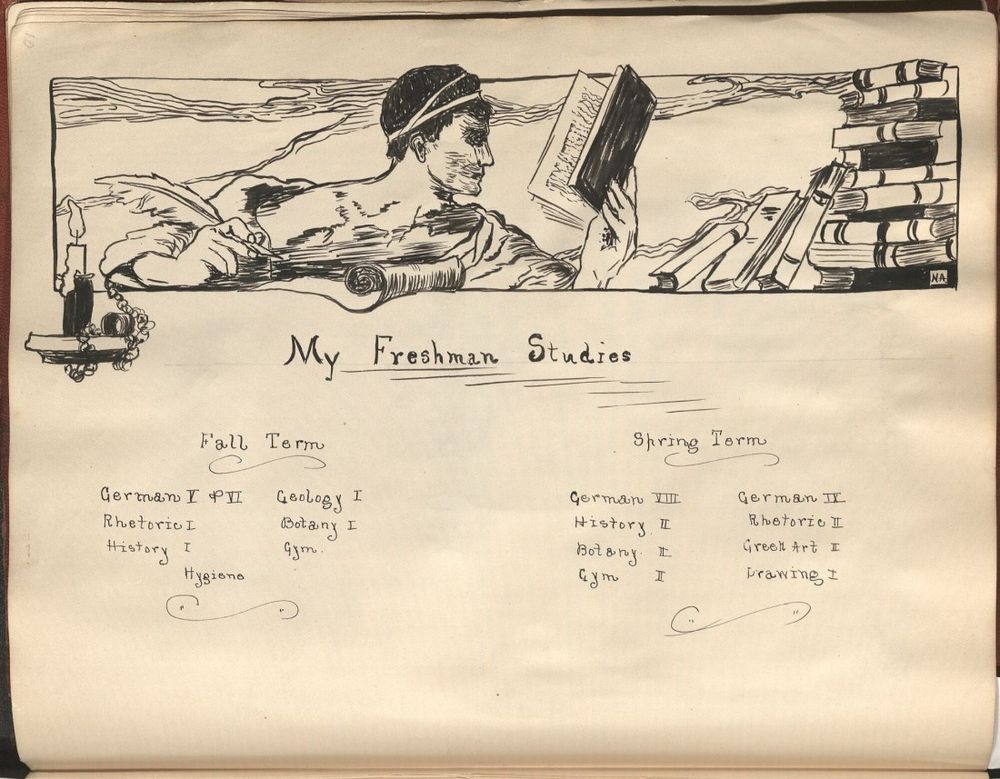 NA
My Freshman Studies
Fall Term
German V & VI
Geology I
Rhetoric I
Botany I
History I
Gym.
Hygiene
Spring Term
German VIII
German IV
History II
Rhetoric II
Botany II
Greek Art II
Gym II
Drawing I